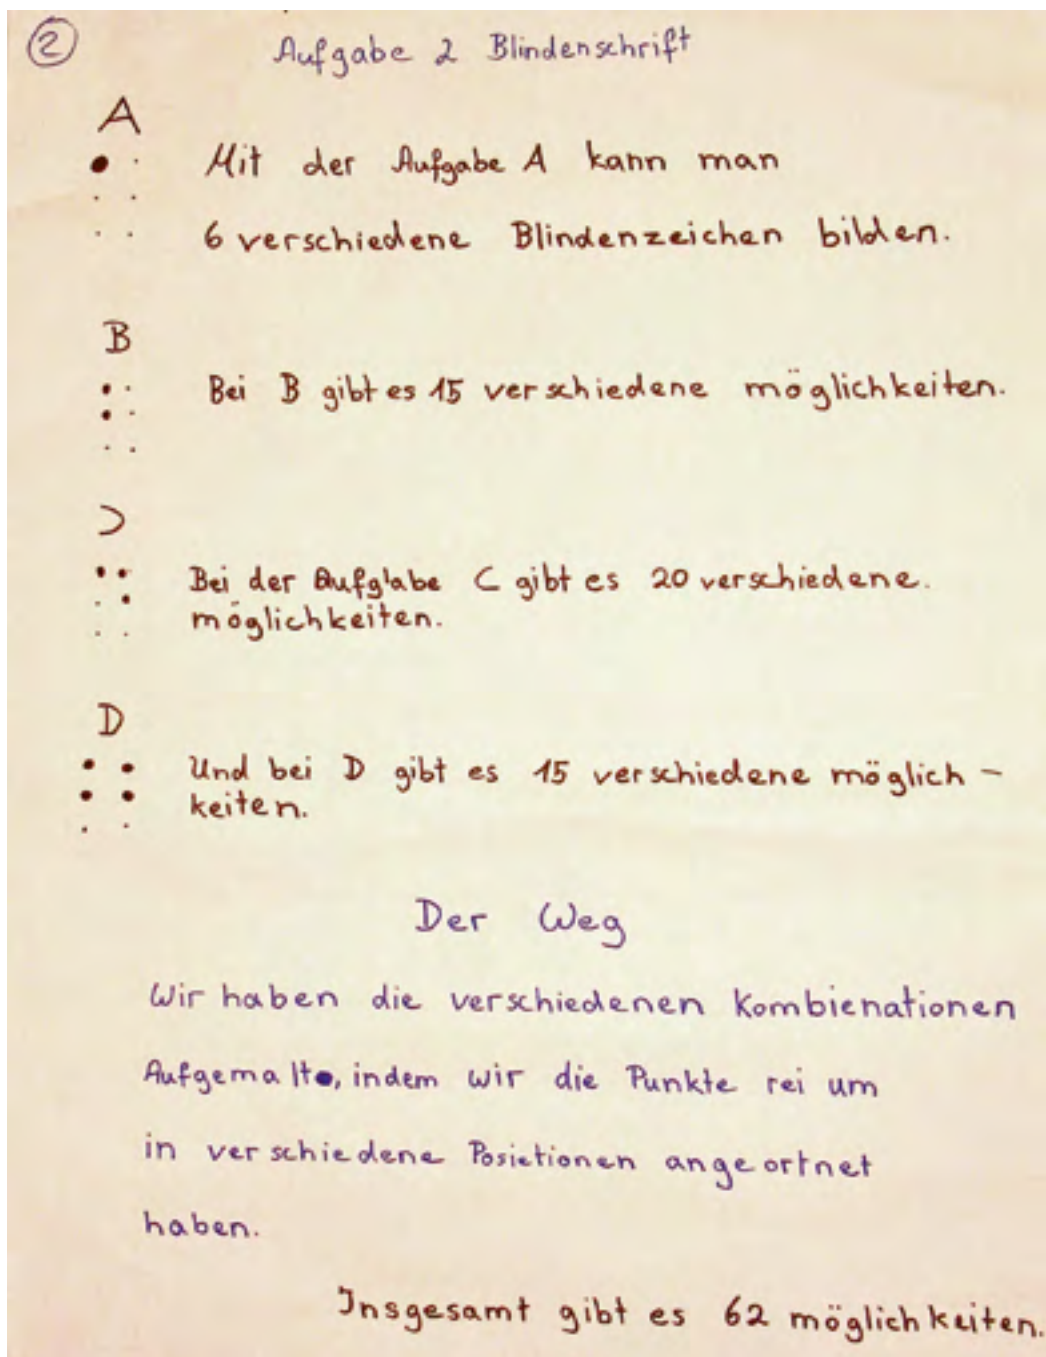 2
Aufgabe 2 Blindenschrift
A
Mit der Aufgabe A kann man
6 verschiedene Blindenzeichen bilden.
B
Bei B gibt es 15 verschiedene möglichkeiten.
C
Bei der Aufglabe C gibt es 20 verschiedene.
möglichkeiten.
D
Und bei D gibt es 15 verschiedene möglich-
keiten.
Der Weg
Wir haben die verschiedenen Kombienationen
Aufgemalt, indem wir die Punkte rei um
in verschiedene Posietionen angeortnet
haben.
Insgesamt gibt es 62 möglichkeiten.